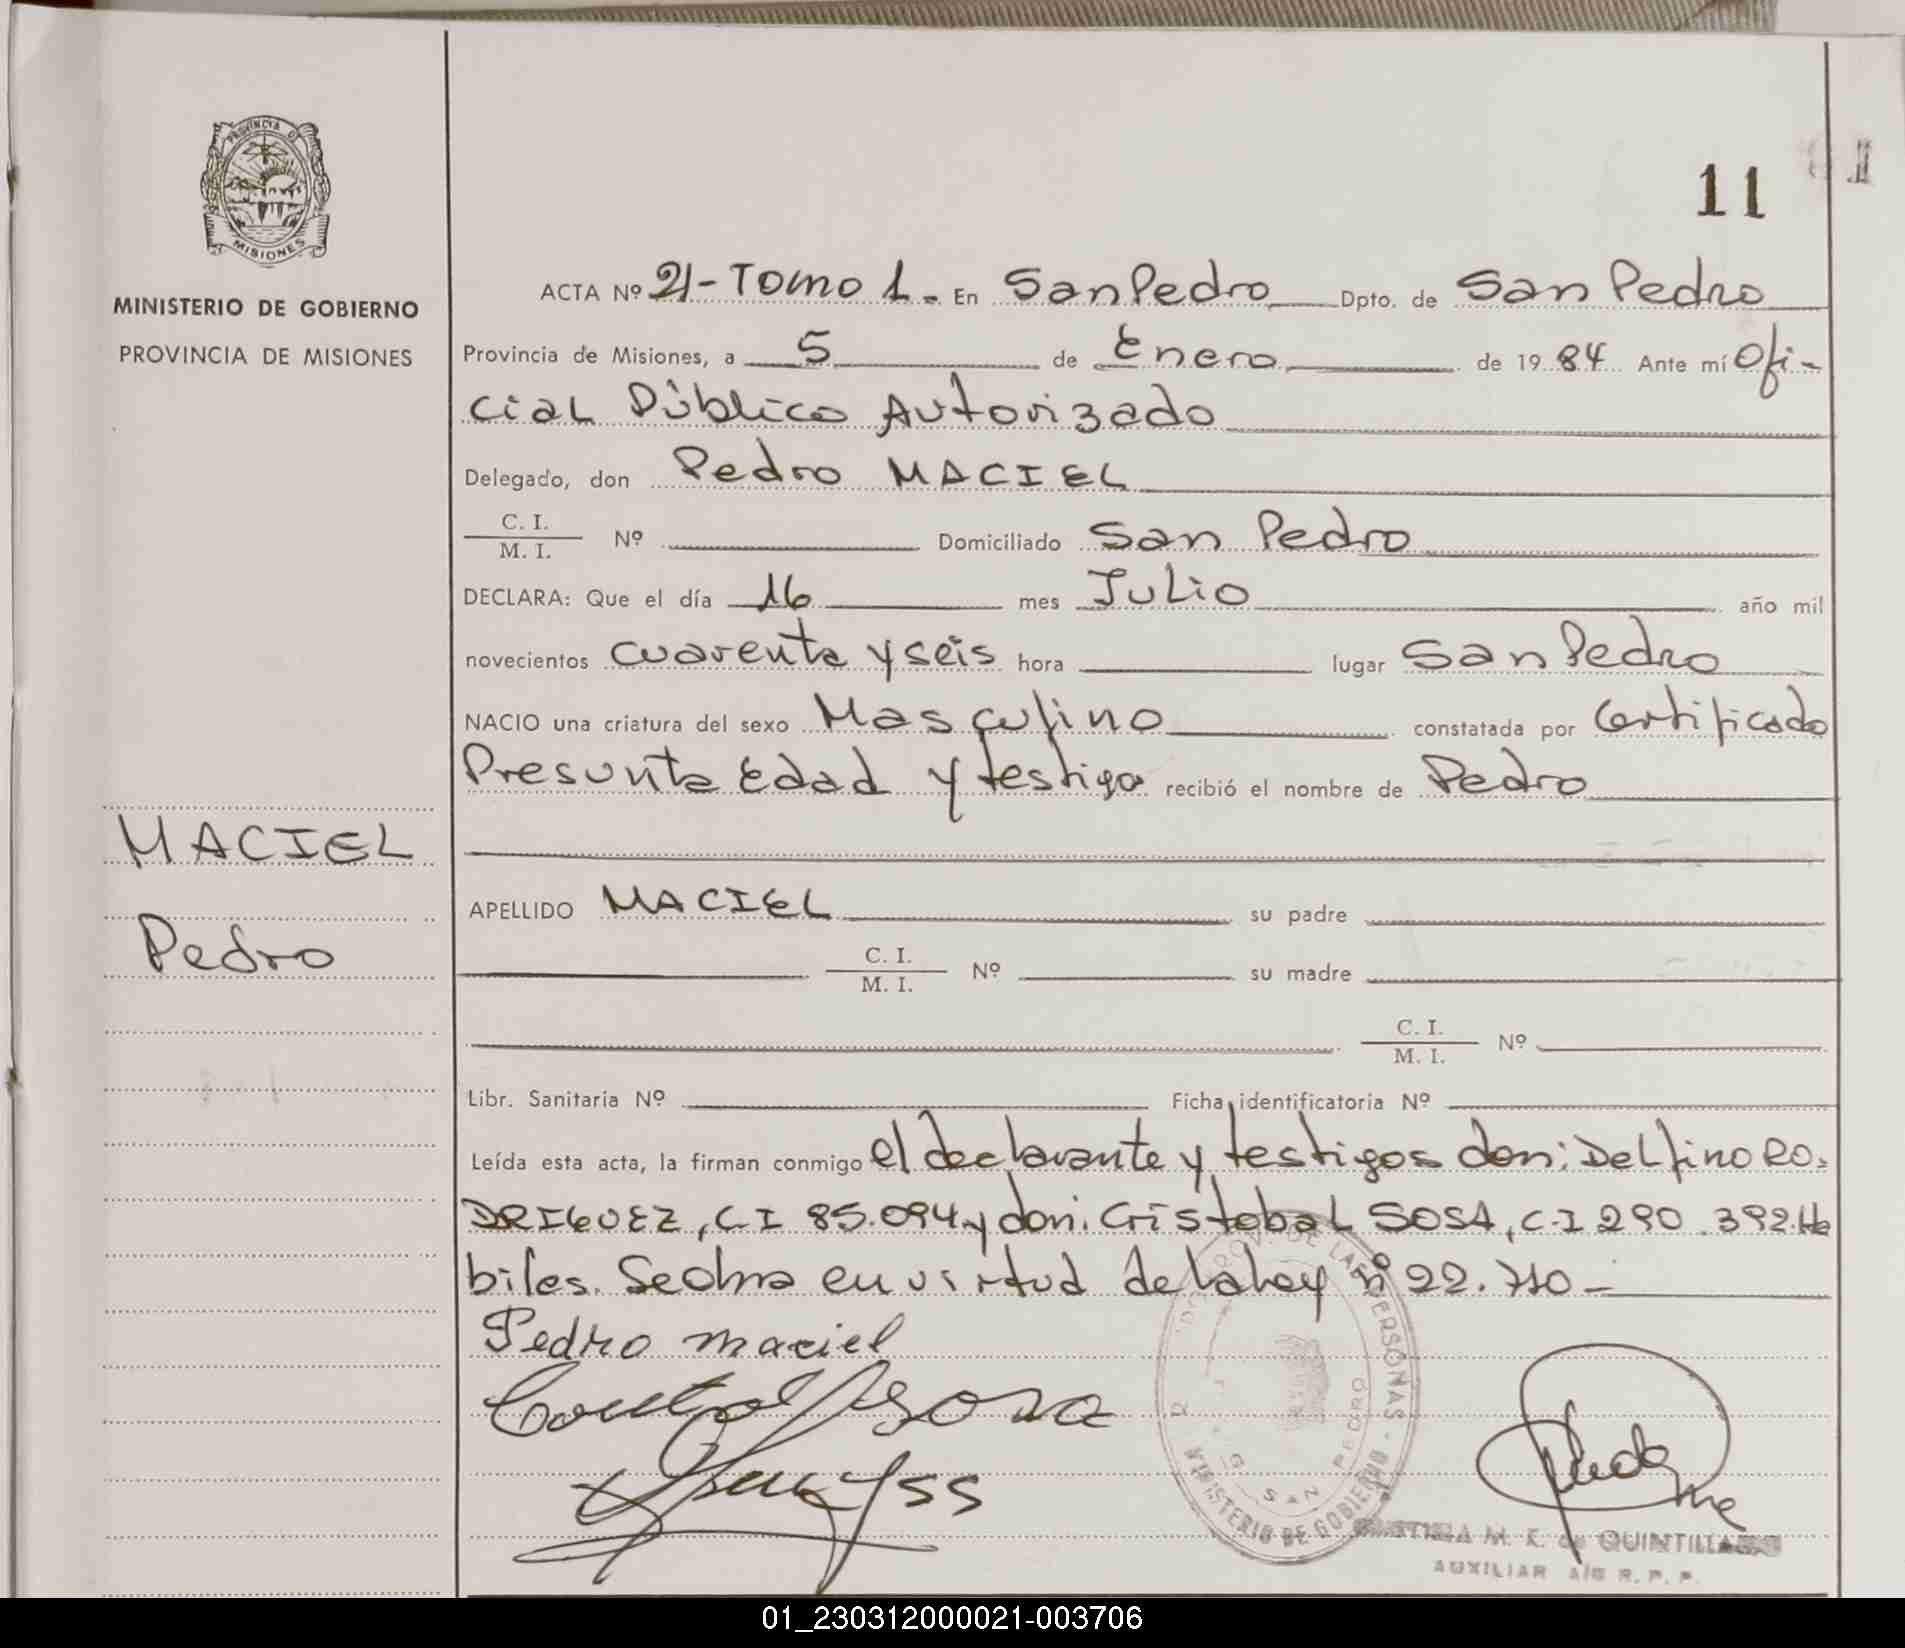 11
PROVINCIA DE
MISIONES
MINISTERIO DE GOBIERNO
PROVINCIA DE MISIONES
MACIEL
Pedro
ACTA Nº 21 - Tomo 1. En San Pedro Dpto. de San Pedro
Provincia de Misiones, a 5 de Enero de 19 84 Ante mí Ofi-
cial Público Autorizado
Delegado, don Pedro MACIEL
C. I.
M. I. Nº Domiciliado San Pedro
DECLARA: Que el día 16 mes Julio año mil
novecientos cuarenta y seis hora lugar San Pedro
NACIO una criatura del sexo Masculino constatada por Certificado
Presunta Edad y testigo recibió el nombre de Pedro
APELLIDO MACIEL su padre
C. I.
M. I. Nº su madre
C. I.
M. I. Nº
Libr. Sanitaria Nº Ficha identificatoria Nº
Leída esta acta, la firman conmigo el declarante y testigos don: Delfino RO-
DRIGUEZ, C.I 85.094 y don: Cristobal SOSA, C.I 290.392. Ha
biles. Se obra en virtud de la Ley nº 22.710 -
Pedro maciel
Sosa
DE LAS PERSONAS
SAN PEDRO
MINISTERIO DE GOBIERNO
M. K. de QUINTILLAN
AUXILIAR A/C R. P. P.
01_230312000021-003706